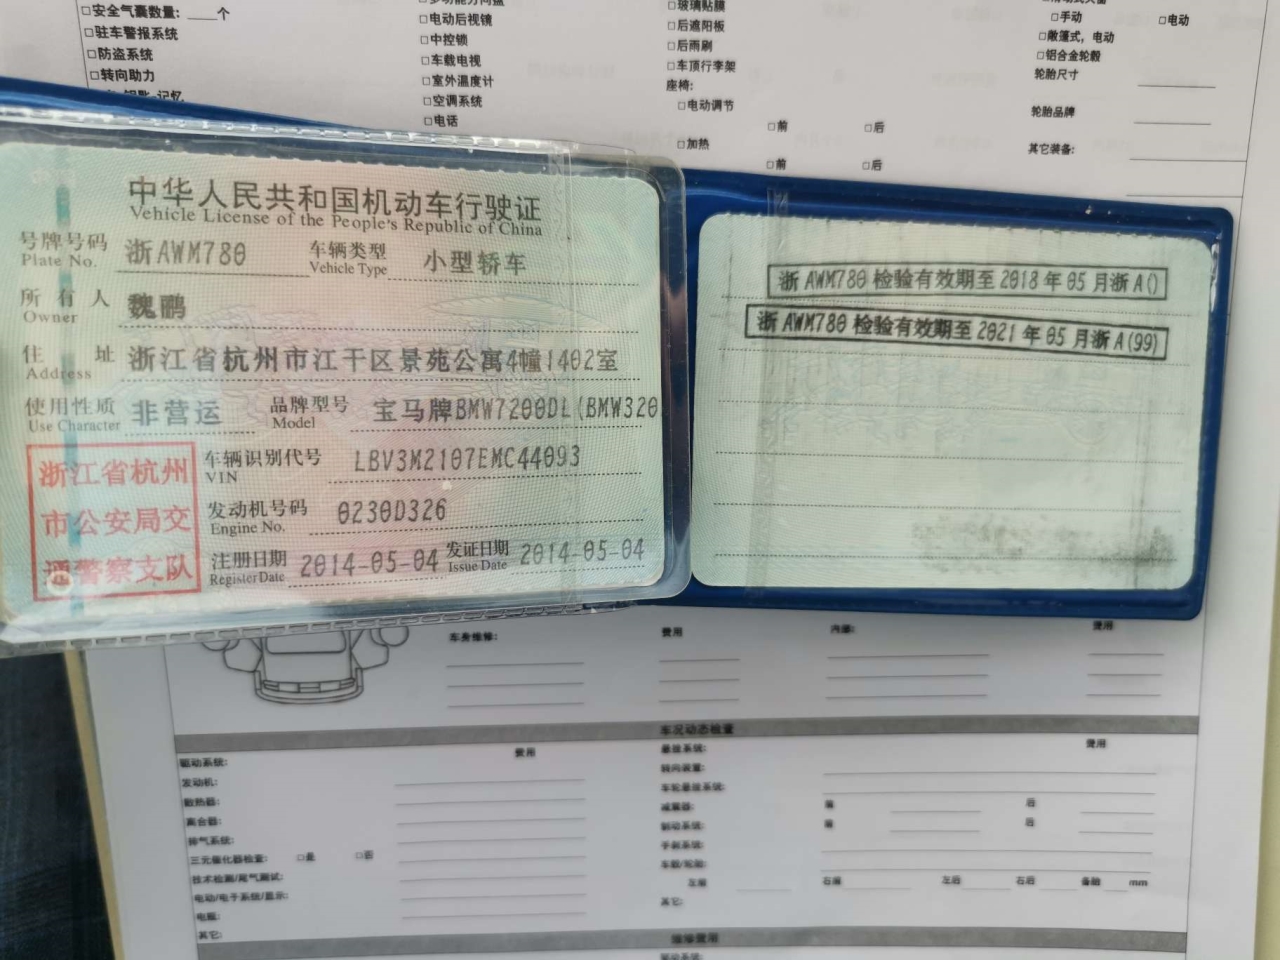 □安全气囊数量: ____个
□驻车警报系统
□防盗系统
□转向助力
□电动后视镜
□中控锁
□车载电视
□室外温度计
□空调系统
□电话
□玻璃贴膜
□后遮阳板
□后雨刷
□车顶行李架
座椅:
□电动调节
□前 □后
□加热
□前 □后
□手动 □电动
□敞篷式，电动
□铝合金轮毂
轮胎尺寸
轮胎品牌
其它装备:
中华人民共和国机动车行驶证
Vehicle License of the People's Republic of China
号牌号码 浙AWM780 车辆类型 小型轿车
Plate No. Vehicle Type
所有人 魏鹏
Owner
住址 浙江省杭州市江干区景苑公寓4幢1402室
Address
使用性质 非营运 品牌型号 宝马牌BMW7200DL(BMW320
Use Character Model
车辆识别代号 LBV3M2107EMC44093
VIN
发动机号码 0230D326
Engine No.
注册日期 2014-05-04 发证日期 2014-05-04
Register Date Issue Date
浙江省杭州
市公安局交
通警察支队
浙AWM780检验有效期至2018年05月浙A()
浙AWM780检验有效期至2021年05月浙A(99)
车身维修: 费用 内部: 费用
车况动态检查
费用 费用
驱动系统:
发动机:
散热器:
离合器:
排气系统:
三元催化器检查: □是 □否
技术检测/尾气测试:
电动/电子系统/显示:
电瓶:
其它:
悬挂系统:
转向装置:
车轮悬挂系统:
减震器: 前 后
制动系统: 前 后
手刹系统:
车毂/轮胎:
左前 右前 左后 右后 备胎 mm
其它:
维修费用